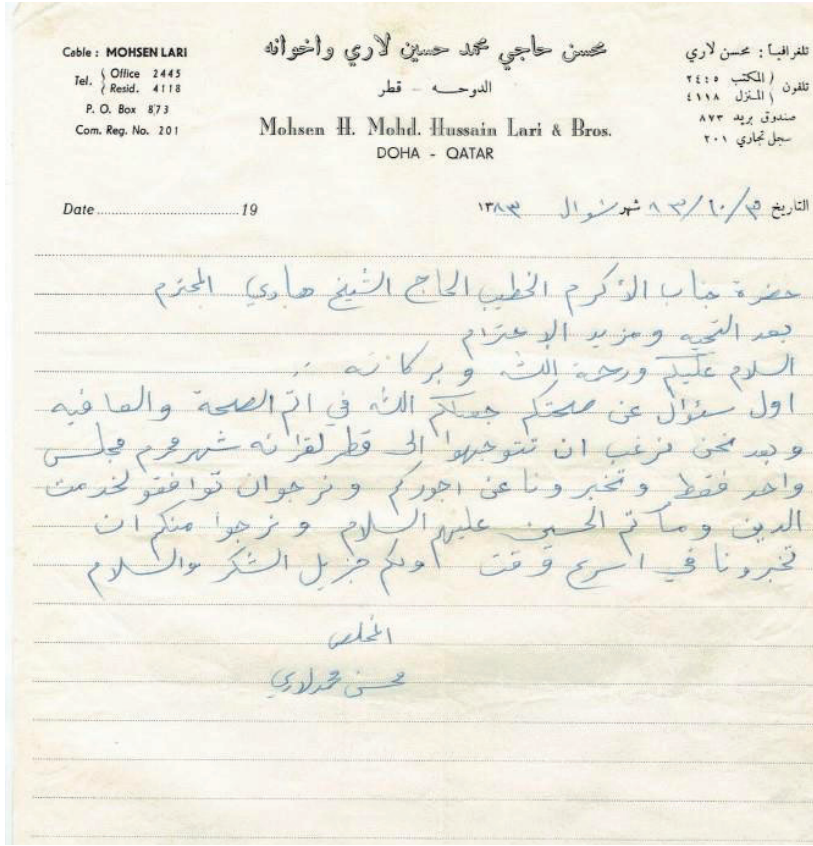 Cable : MOHSEN LARI
Tel. { Office 2445
Resid. 4118
P. O. Box 873
Com. Reg. No. 201
محسن حاجي محمد حسين لاري واخوانه
الدوحه - قطر
Mohsen H. Mohd. Hussain Lari & Bros.
DOHA - QATAR
تلغرافياً : محسن لاري
تلفون { المكتب ٢٤٤٥
المنزل ٤١١٨
صندوق بريد ٨٧٣
سجل تجاري ٢٠١
Date ........................ 19
التاريخ ٨٣/١٠/٣ شهر شوال ١٣٨٣
حضرة جناب الأكرم الخطيب الحاج الشيخ هادي المحترم
بعد التحيه ومزيد الإحترام
السلام عليكم ورحمة الله وبركاته
اول سئوال عن صحتكم جعلكم الله في اتم الصحة والعافيه
وبعد نحن نرغب ان تتوجهوا الى قطر لقرائه شهر محرم مجلس
واحد فقط وتخبرونا عن اجوركم ونرجوان توافقو لخدمت
الدين ومأتم الحسين عليهم السلام ونرجوا منكم ان
تخبرونا في اسرع وقت ولكم جزيل الشكر والسلام
المخلص
محسن محمد لاري